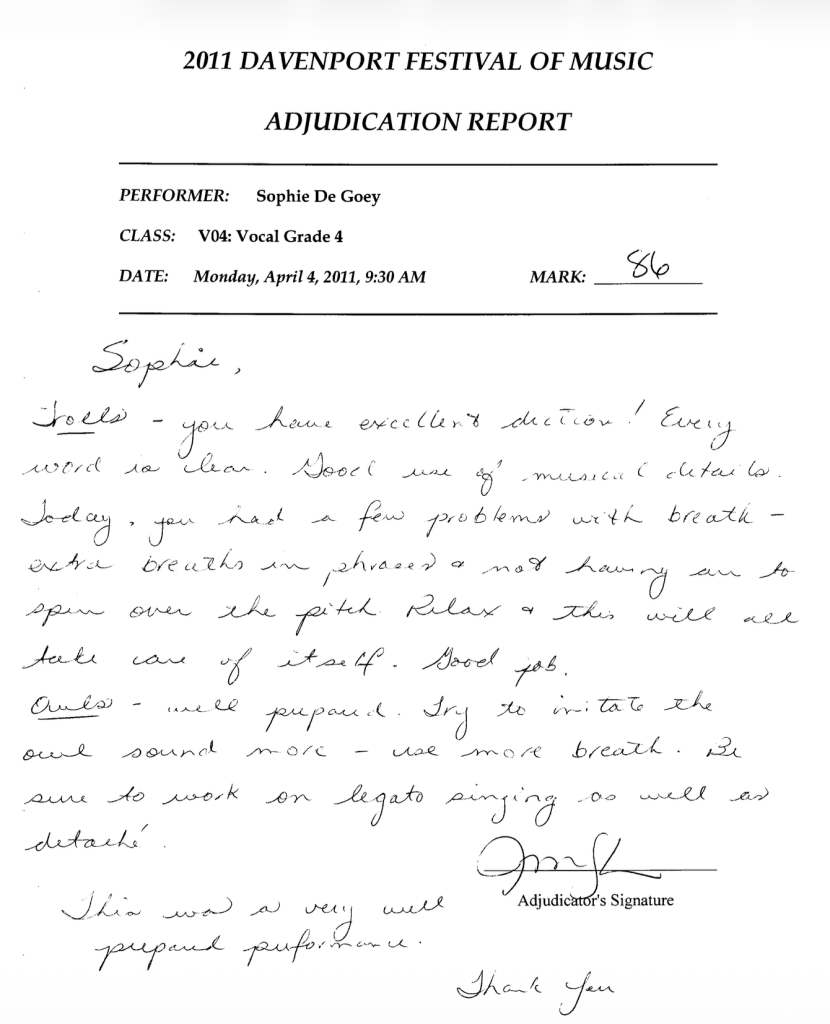 2011 DAVENPORT FESTIVAL OF MUSIC
ADJUDICATION REPORT
PERFORMER: Sophie De Goey
CLASS: V04: Vocal Grade 4
DATE: Monday, April 4, 2011, 9:30 AM MARK: 86
Sophie,
Trolls - you have excellent diction! Every
word is clear. Good use of musical details.
Today, you had a few problems with breath -
extra breaths in phrases & not having air to
spin over the pitch. Relax & this will all
take care of itself. Good job.
Owls - well prepared. Try to imitate the
owl sound more - use more breath. Be
sure to work on legato singing as well as
detaché.
Adjudicator's Signature
This was a very well
prepared performance.
Thank You